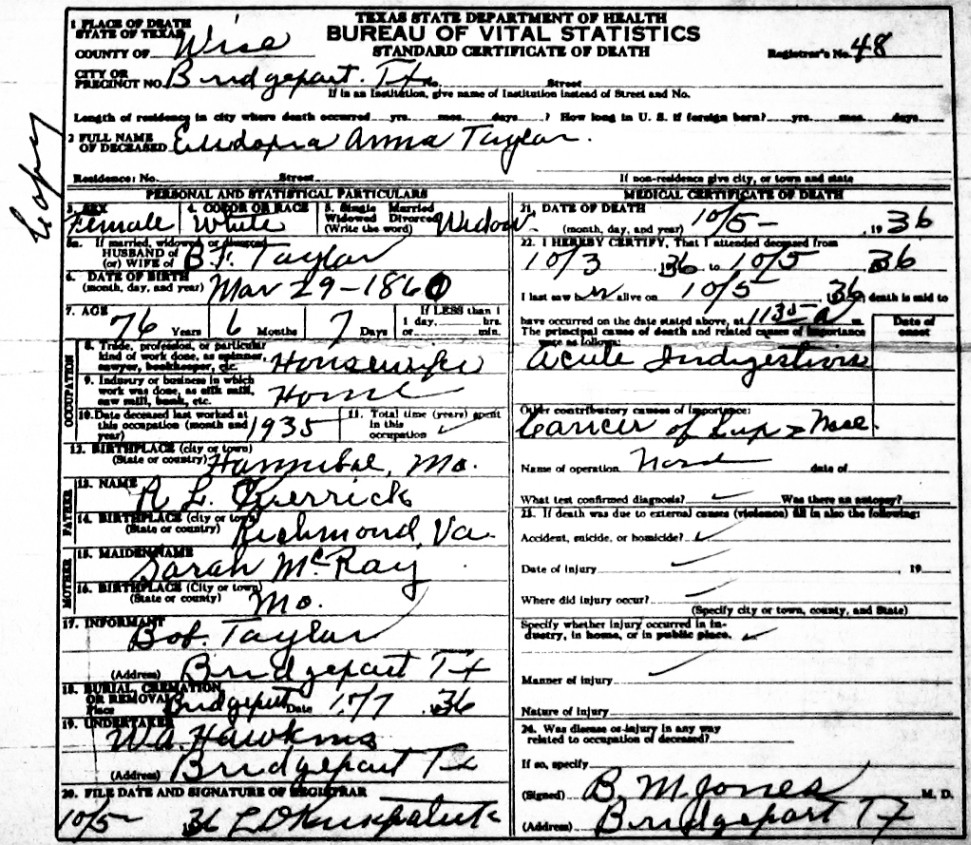 TEXAS STATE DEPARTMENT OF HEALTH
BUREAU OF VITAL STATISTICS
STANDARD CERTIFICATE OF DEATH
Registrar's No. 48
Copy
1 PLACE OF DEATH
STATE OF TEXAS
COUNTY OF Wise
CITY OR
PRECINCT NO. Bridgeport. Tx No. Street
If in an Institution, give name of Institution instead of Street and No.
Length of residence in city where death occurred yrs. mos. days ? How long in U. S. if foreign born? yrs. mos. days
2 FULL NAME
OF DECEASED Anna Taylor.
Residence: No. Street If non-residence give city, or town and state
PERSONAL AND STATISTICAL PARTICULARS
3. SEX Female
4. COLOR OR RACE White
5. Single Married
Widowed Divorced
(Write the word) Widow
5a. If married, widowed or divorced
HUSBAND of
(or) WIFE of B. F. Taylor
6. DATE OF BIRTH
(month, day, and year) Mar 29-1860
7. AGE 76 Years 6 Months 7 Days
If LESS than 1
1 day, hrs.
or min.
OCCUPATION
8. Trade, profession, or particular
kind of work done, as spinner,
sawyer, bookkeeper, etc. Housewife
9. Industry or business in which
work was done, as silk mill,
saw mill, bank, etc. Home
10. Date deceased last worked at
this occupation (month and
year) 1935
11. Total time (years) spent
in this
occupation ✓
12. BIRTHPLACE (city or town)
(State or country) Hannibal, Mo.
FATHER
13. NAME R L.
14. BIRTHPLACE (city or town)
(State or country) Richmond, Va.
MOTHER
15. MAIDEN NAME Sarah McRay
16. BIRTHPLACE (City or town)
(State or county) Mo.
17. INFORMANT Bob. Taylor
(Address) Bridgeport Tx
18. BURIAL, CREMATION
OR REMOVAL
Place Bridgeport Date 10/7 1936
19. UNDERTAKER W.A. Hawkins
(Address) Bridgeport Tx
20. FILE DATE AND SIGNATURE OF REGISTRAR
10/5- 36 L D Kirkpatrick
MEDICAL CERTIFICATE OF DEATH
21. DATE OF DEATH
(month, day, and year) 10/5- , 1936
22. I HEREBY CERTIFY, That I attended deceased from
10/3 1936 to 10/5 1936
I last saw her alive on 10/5 1936, death is said to
have occurred on the date stated above, at 1135 a m.
The principal cause of death and related causes of importance
were as follows:
Date of
onset
Acute Indigestion
Other contributory causes of importance:
Cancer of Lip & Nose.
Name of operation None date of
What test confirmed diagnosis? ✓ Was there an autopsy?
23. If death was due to external causes (violence) fill in also the following:
Accident, suicide, or homicide? ✓
Date of injury ✓ , 19
Where did injury occur? ✓
(Specify city or town, county, and State)
Specify whether injury occurred in in-
dustry, in home, or in public place. ✓
Manner of injury ✓
Nature of injury
24. Was disease or injury in any way
related to occupation of deceased?
If so, specify
(Signed) B. M. Jones M. D.
(Address) Bridgeport Tx